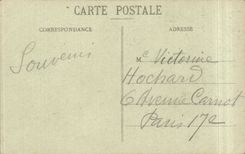 CARTE POSTALE
CORRESPONDANCE
ADRESSE
Souvenir
M e Victorine
Hochard
6 Avenue Carnot
Paris 17e